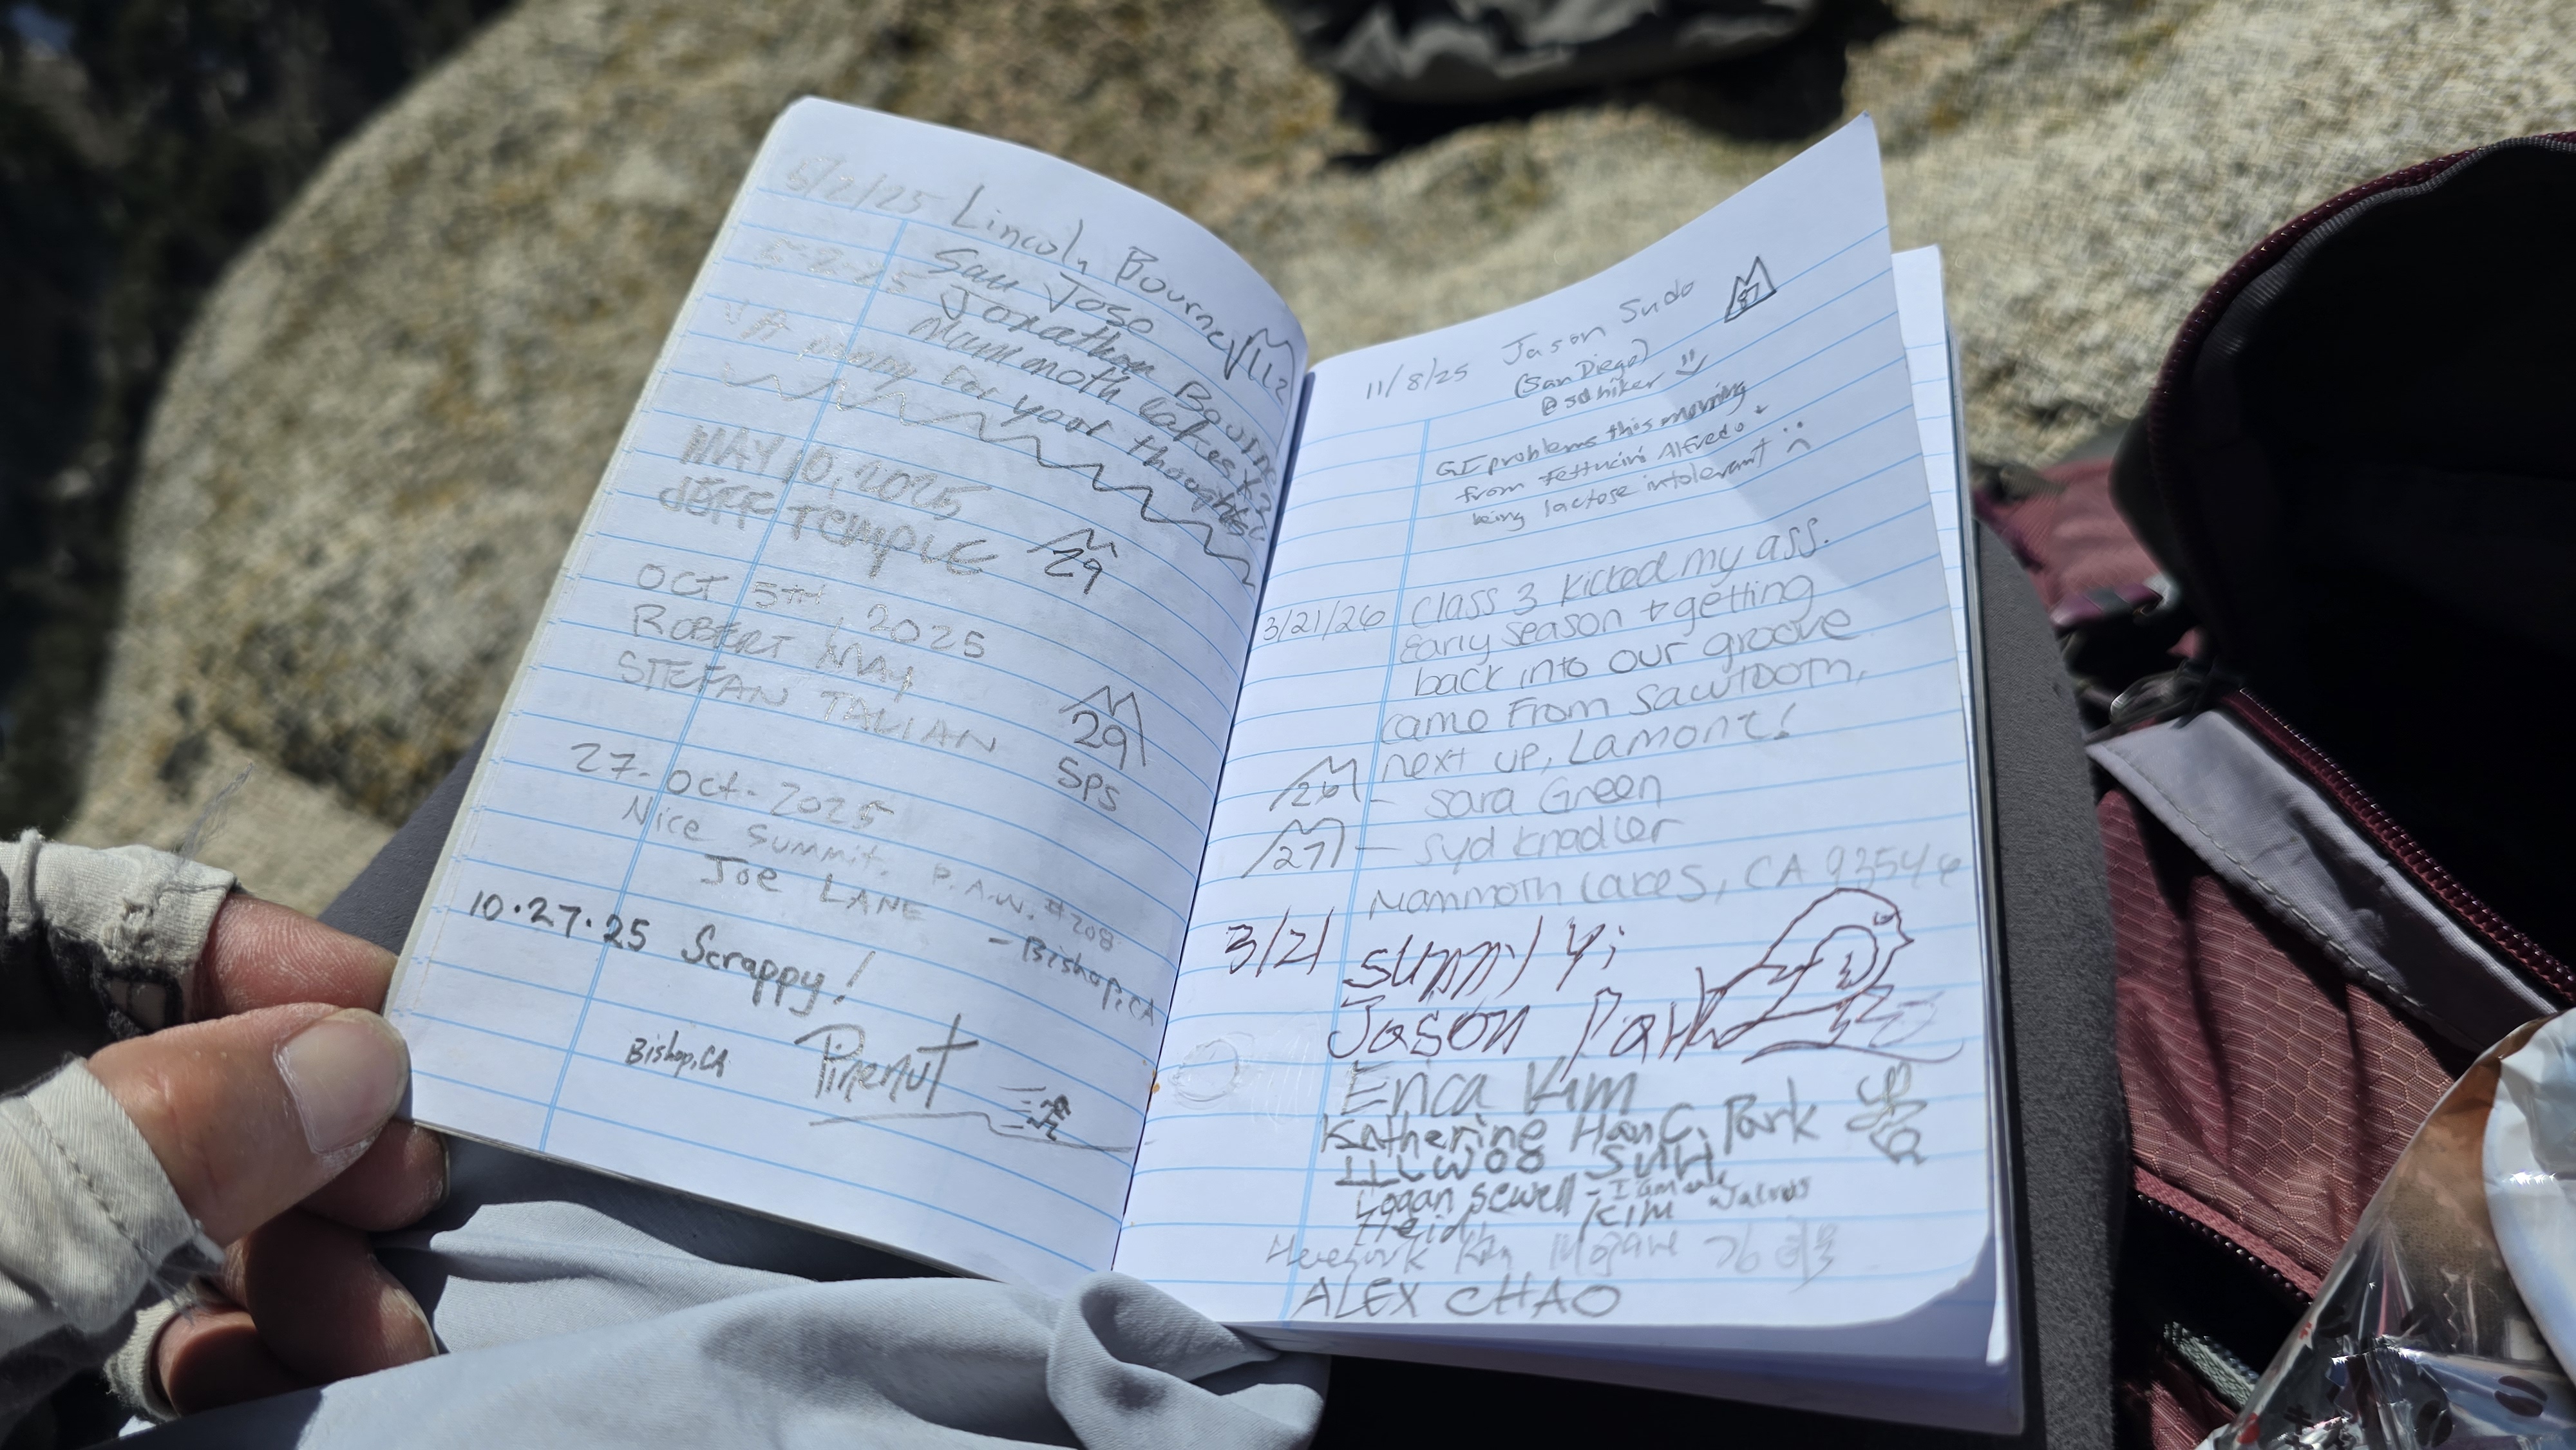 5/2/25 Lincoln Bourne 112
San Jose
5-2-25 Jonathan Bourne
Mammoth Lakes
A penny for your thoughts
MAY 10, 2025
JEFF TEMPLE 29
OCT 5TH, 2025
ROBERT MAY
STEFAN TALIAN 29
SPS
27-Oct-2025
Nice summit. P.A.W. #208
JOE LANE - Bishop, CA
10.27.25 Scrappy!
Bishop, CA Pinenut
11/8/25 Jason Sudo
(San Diego)
@sdhiker
GI problems this morning
from Fettucini Alfredo,
being lactose intolerant
Class 3 kicked my ass.
3/21/26 Early season + getting
back into our groove
came from Sawtooth,
next up, Lamont!
26 - Sara Green
27 - Syd Knadler
Mammoth Lakes, CA 93546
3/21 Sunny Yi
Jason Park
Erica Kim
Katherine Han C. Park
Logan Sewell - I am
Heidi Kim
ALEX CHAO